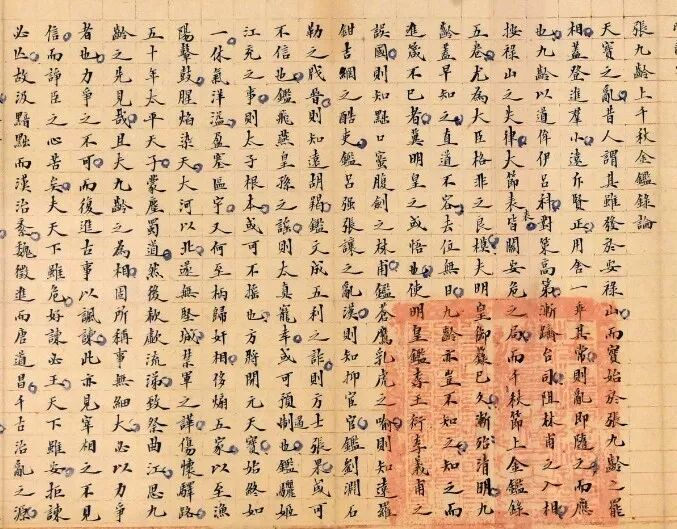 張九齡上千秋金鑑錄論
天寶之亂昔人謂其雖發於安祿山而實始於張九齡之罷
相蓋登進羣小遠斥賢正用舍一乖其常則亂即隨之而應
也九齡以道侔伊呂科對策高第漸躋台司阻林甫之入相
按祿山之失律大節表表皆關安危之局而千秋節上金鑑錄
五卷尤為大臣格非之良模夫明皇御㝡已久漸殆清明九
齡蓋早知之直道不容去位無日九齡亦豈不知之知之而
進箴不已者冀明皇之或悟也使明皇鑑王衍李義甫之
誤國則知黜口蜜腹劍之林甫鑑蒼鷹乳虎之喻則知遠羅
鉗吉網之酷吏鑑呂强張讓之亂漢則知抑宦官鑑劉淵石
勒之戕晉則知遠胡羯鑑文成五利之詐則方士張果或可
不信也鑑飛燕皇孫之謠則太真寵幸或可預制也鑑驪姬
江充之事則太子根本或可不搖也方將開元天寶始終如
一休氣洋溢盈塞區宇又何至柄歸奸相侈煽五家以至漁
陽鼙鼓腥焰染天大河以北遂無堅城禁軍之譁傷懷驛路
五十年太平天子蒙塵蜀道然後歔欷流涕致祭曲江思九
齡之先見哉且夫九齡之為相固所稱事無細大必以力爭
者也力爭之不可而復進古事以諷諫此亦見宰相之不見
信而諍臣之心苦矣夫天下雖危好諫必王天下雖安拒諫
必亡故汲黯黜而漢治紊魏徵進而唐道昌千古治亂之源